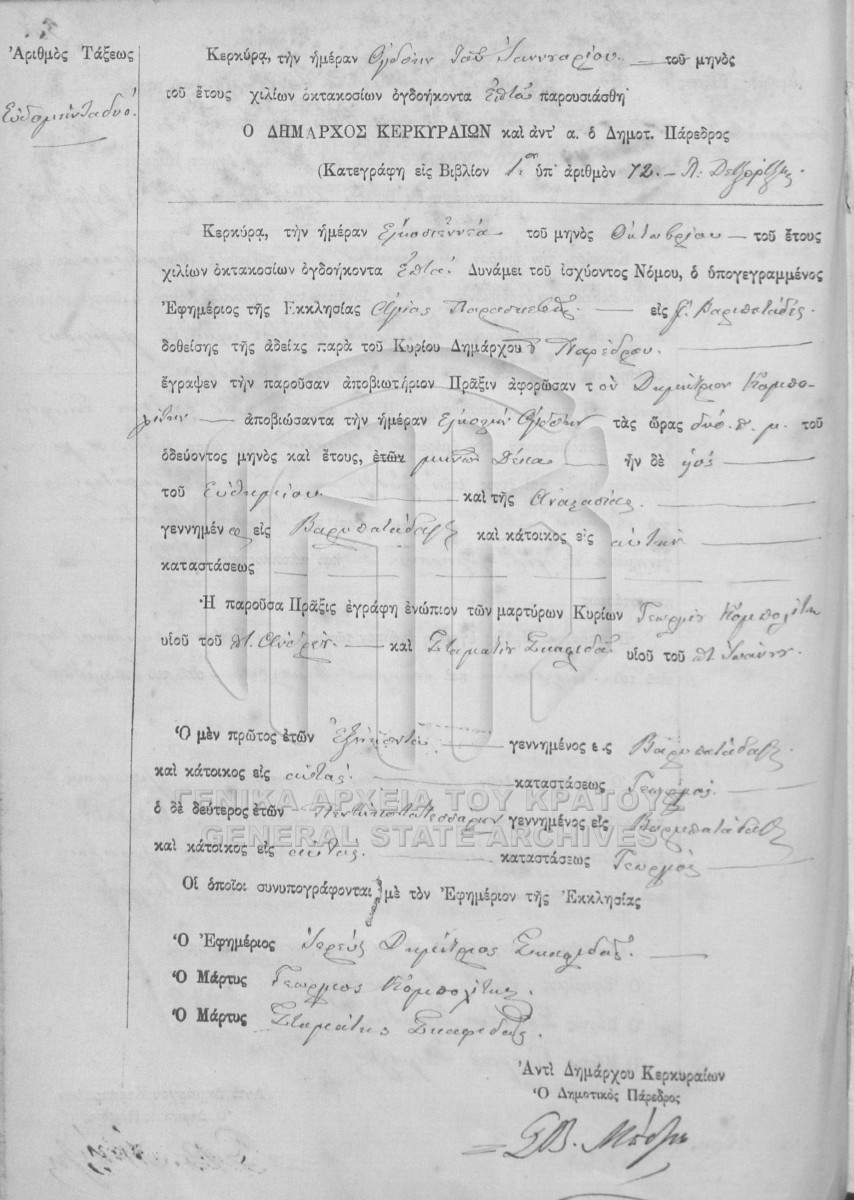 Ἀριθμὸς Τάξεως
Κερκύρᾳ, τὴν ἡμέραν Ὀγδόην τοῦ Ἰαννουαρίου τοῦ μηνὸς
τοῦ ἔτους χιλίων ὀκτακοσίων ὀγδοήκοντα ἑπτὰ παρουσιάσθη
Ο ΔΗΜΑΡΧΟΣ ΚΕΡΚΥΡΑΙΩΝ καὶ ἀντ' α. ὁ Δημοτ. Πάρεδρος
(Κατεγράφη εἰς Βιβλίον 1ον ὑπ' ἀριθμὸν 72.
Κερκύρᾳ, τὴν ἡμέραν Εἰκοσιεννέα τοῦ μηνὸς Ὀκτωβρίου τοῦ ἔτους
χιλίων ὀκτακοσίων ὀγδοήκοντα Ἑπτά. Δυνάμει τοῦ ἰσχύοντος Νόμου, ὁ ὑπογεγραμμένος
Ἐφημέριος τῆς Ἐκκλησίας Ἁγίας Παρασκευῆς εἰς Βαριπατάδες
δοθείσης τῆς ἀδείας παρὰ τοῦ Κυρίου Δημάρχου Παρέδρου.
ἔγραψεν τὴν παροῦσαν ἀποβιωτήριον Πρᾶξιν ἀφορῶσαν τὸν Δημήτριον Κομπο-
λίτην ἀποβιώσαντα τὴν ἡμέραν Εἰκοστὴν Ὀγδόην τὰς ὥρας δύο. π. μ. τοῦ
ὁδεύοντος μηνὸς καὶ ἔτους, ἐτῶν μηνῶν Δέκα ἦν δὲ υἱός
τοῦ Εὐθυμίου καὶ τῆς Ἀναστασίας
γεννημένος εἰς Βαρυπατάδαις καὶ κάτοικος εἰς αὐτὴν
καταστάσεως
Ἡ παροῦσα Πρᾶξις ἐγράφη ἐνώπιον τῶν μαρτύρων Κυρίων Γεωργίου Κομπολίτη
υἱοῦ τοῦ ποτ. Ἀνδρέου καὶ Σταματίου Σκαφιδᾶ υἱοῦ τοῦ ποτ. Ἰωάννου.
Ὁ μὲν πρῶτος ἐτῶν Ἑξήκοντα γεννημένος εἰς Βαρυπατάδαις
καὶ κάτοικος εἰς αὐτάς. καταστάσεως Γεωργός.
ὁ δὲ δεύτερος ἐτῶν Πεντήκοντατεσσάρων γεννημένος εἰς Βαρυπατάδαις
καὶ κάτοικος εἰς αὐτάς. καταστάσεως Γεωργός
Οἱ ὁποῖοι συνυπογράφονται μὲ τὸν Ἐφημέριον τῆς Ἐκκλησίας
Ὁ Ἐφημέριος Ἱερεὺς Δημήτριος Σκαφιδᾶς.
Ὁ Μάρτυς Γεώργιος Κομπολίτης.
Ὁ Μάρτυς Σταμάτης Σκαφιδᾶς.
Ἀντὶ Δημάρχου Κερκυραίων
Ὁ Δημοτικὸς Πάρεδρος
ΓΕΝΙΚΑ ΑΡΧΕΙΑ ΤΟΥ ΚΡΑΤΟΥΣ
GENERAL STATE ARCHIVES